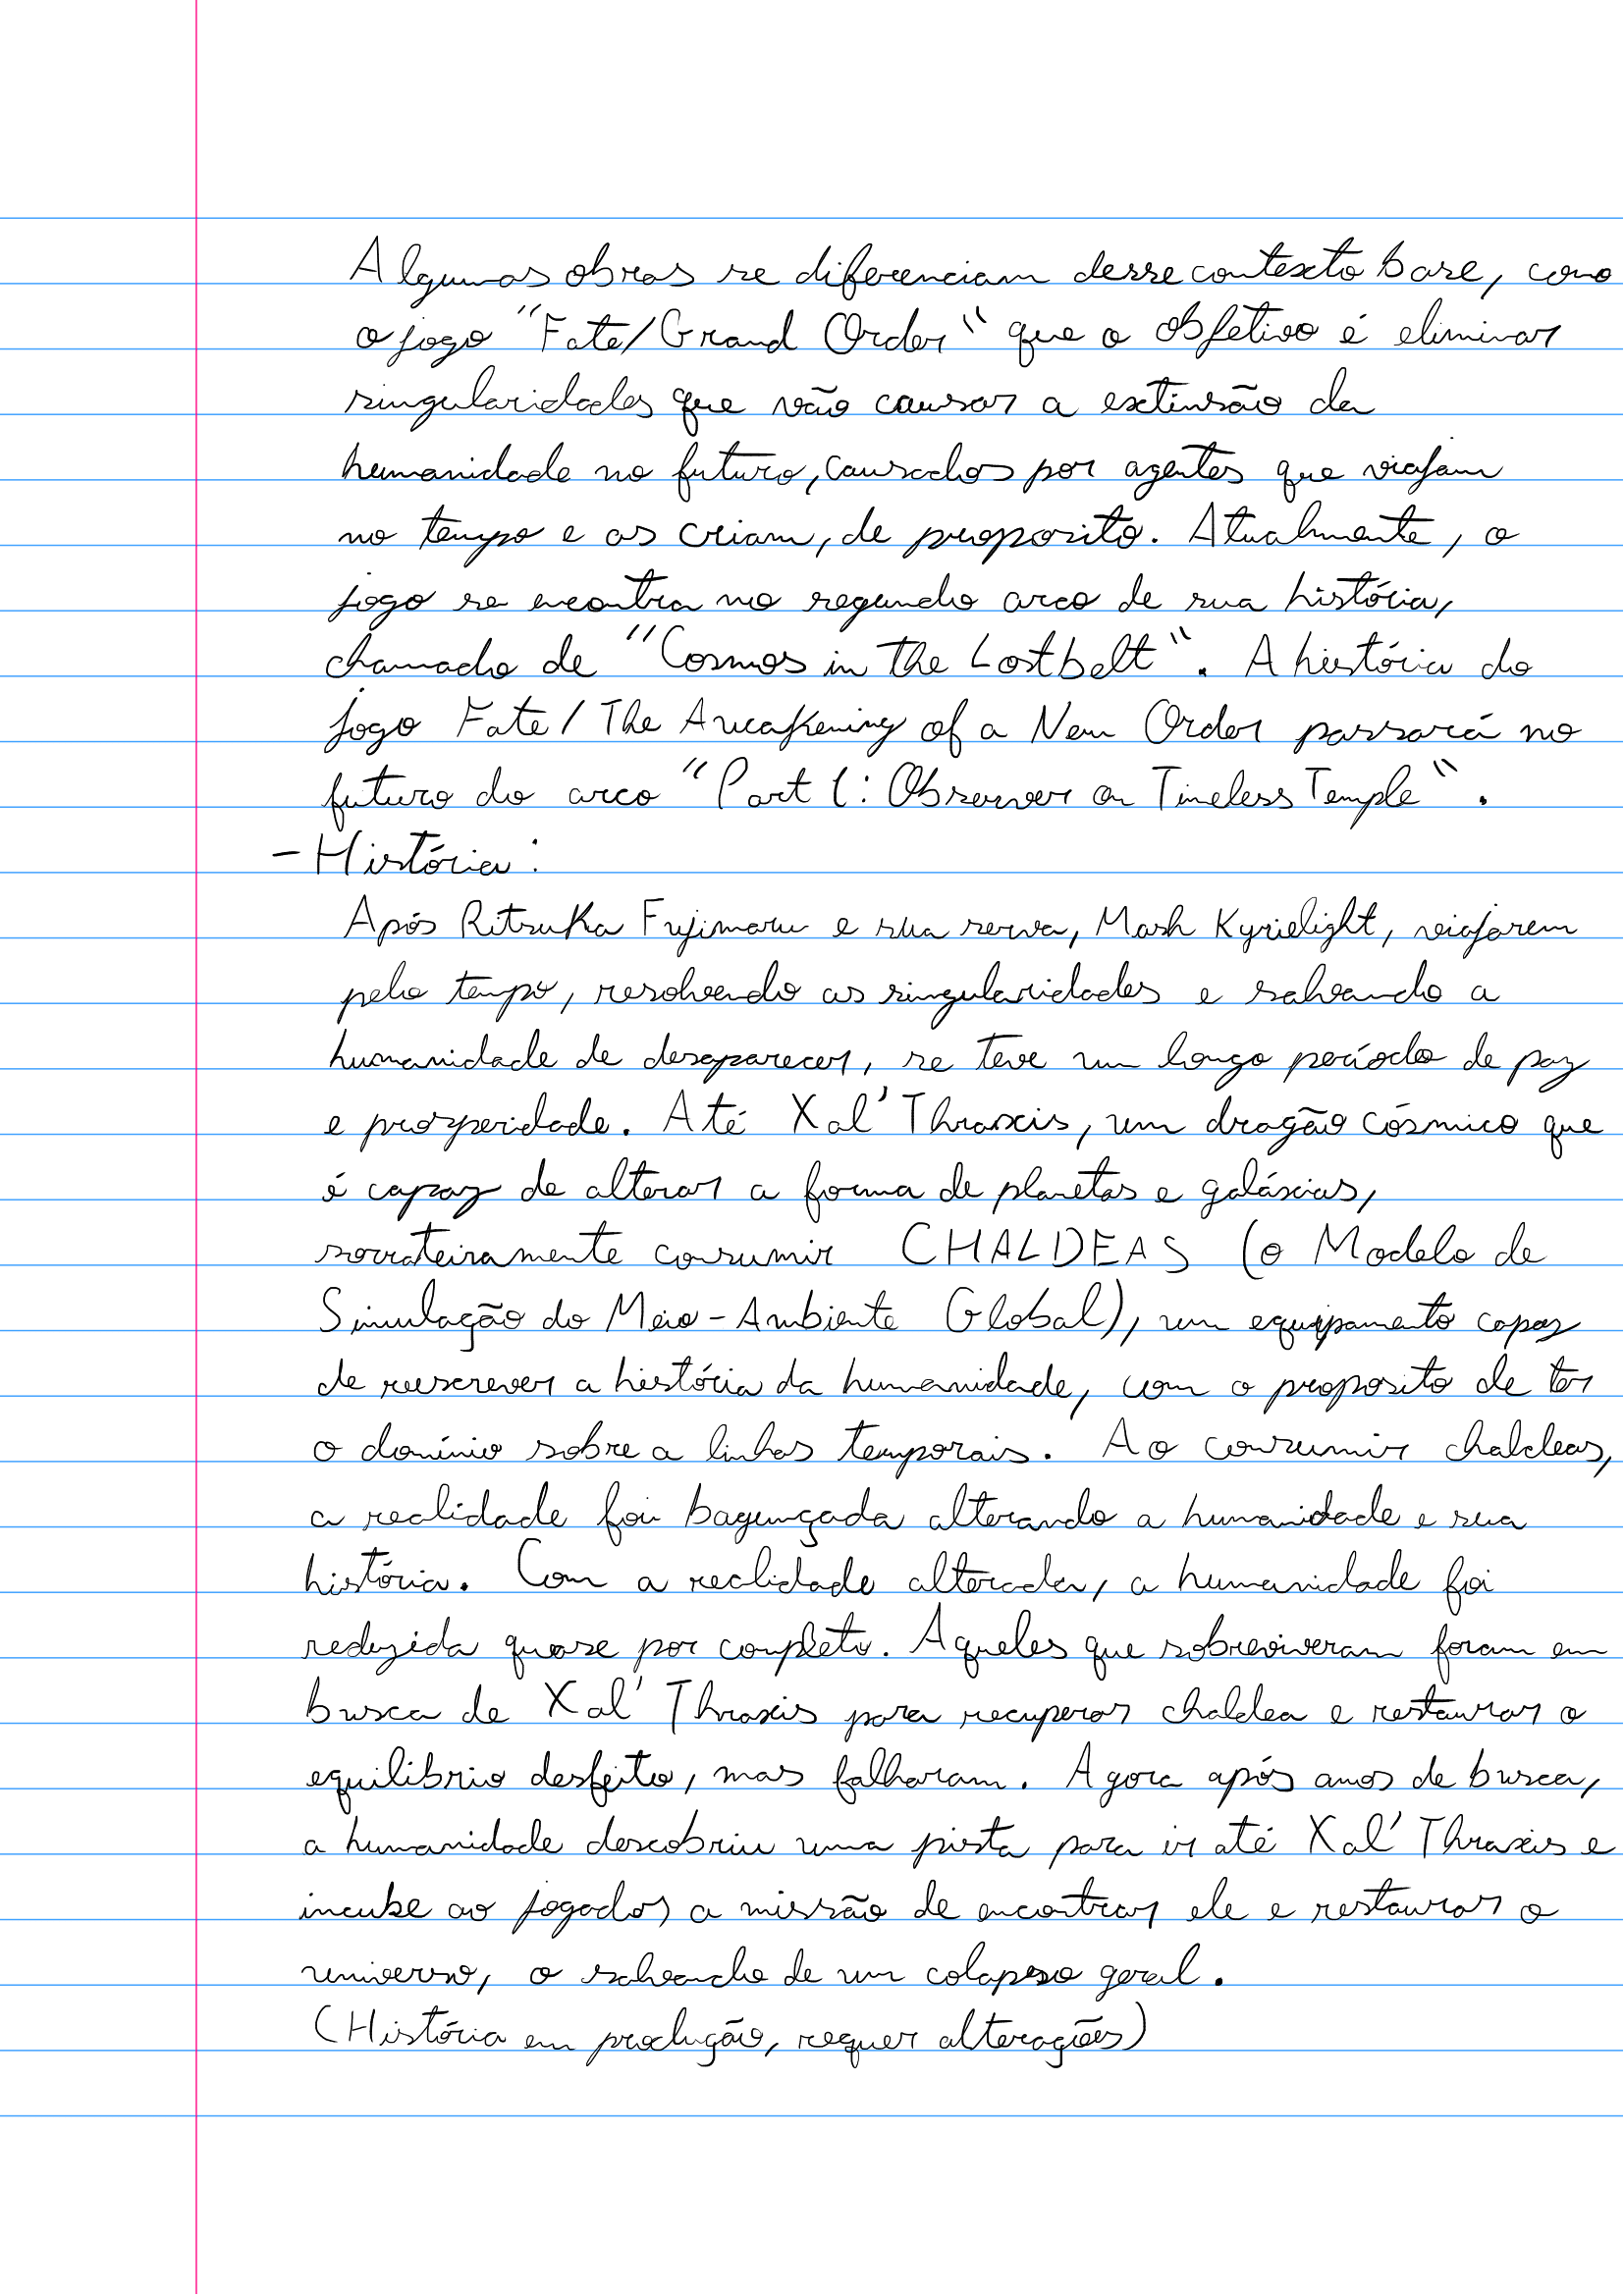 Algumas obras se diferenciam desse contexto base, como
o jogo "Fate/Grand Order" que o objetivo é eliminar
singularidades que vão causar a extinsão da
humanidade no futuro, causados por agentes que viajam
no tempo e as criam, de proposito. Atualmente, o
jogo se encontra no segundo arco de sua história,
chamado de "Cosmos in the Lostbelt". A história do
jogo Fate/The Awakening of a New Order passará no
futuro do arco "Part 1: Observer on Timeless Temple".
- História:
Após Ritsuka Fujimaru e sua serva, Mash Kyrielight, viajarem
pelo tempo, resolvendo as singularidades e salvando a
humanidade de desaparecer, se teve um longo período de paz
e prosperidade. Até Xal'Thraxis, um dragão cósmico que
é capaz de alterar a forma de planetas e galáxias,
sorrateiramente consumir CHALDEAS (o Modelo de
Simulação do Meio-Ambiente Global), um equipamento capaz
de reescrever a história da humanidade, com o proposito de ter
o domínio sobre a linhas temporais. Ao consumir chaldeas,
a realidade foi bagunçada alterando a humanidade e sua
história. Com a realidade alterada, a humanidade foi
reduzida quase por completo. Aqueles que sobreviveram foram em
busca de Xal'Thraxis para recuperar chaldea e restaurar o
equilibrio desfeito, mas falharam. Agora após anos de busca,
a humanidade descobriu uma pista para ir até Xal'Thraxis e
incube ao jogador a missão de encontrar ele e restaurar o
universo, o salvando de um colapso geral.
(História em produção, requer alterações)